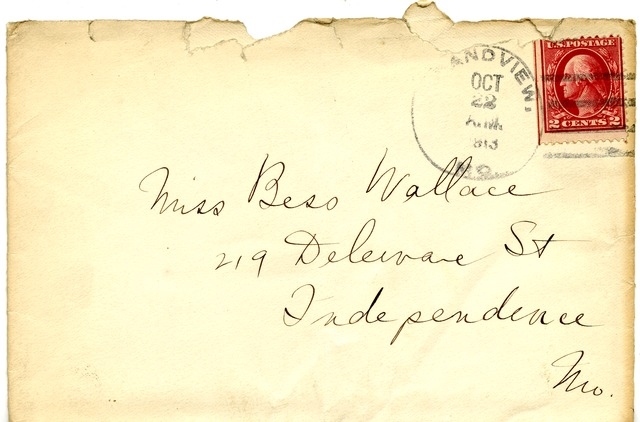 ANDVIEW,
OCT
22
A.M.
1913
MO.
U.S. POSTAGE
2 CENTS 2
Miss Bess Wallace
219 Deleware St
Independence
Mo.